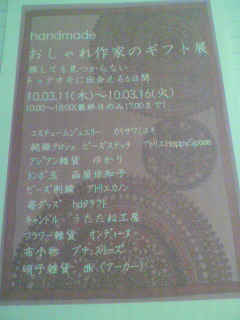 handmade
おしゃれ作家のギフト展
探しても見つからない
トッテオキに出会える6日間
10.03.11(木)～10.03.16(火)
10:00～18:00(最終日のみ17:00まで)
コスチュームジュエリー カリサワミユキ
純銀クロシェ ビーズステッチ アトリエHappySpace
アジアン雑貨 ゆかり
トンボ玉 畐屋佐知子
ビーズ刺繍 アトリエカノン
苺グッズ hdクラフト
キャンドル うたたね工房
フラワー雑貨 オンディーヌ
布小物 プチ・スリーズ
硝子雑貨 dk(アーカー)